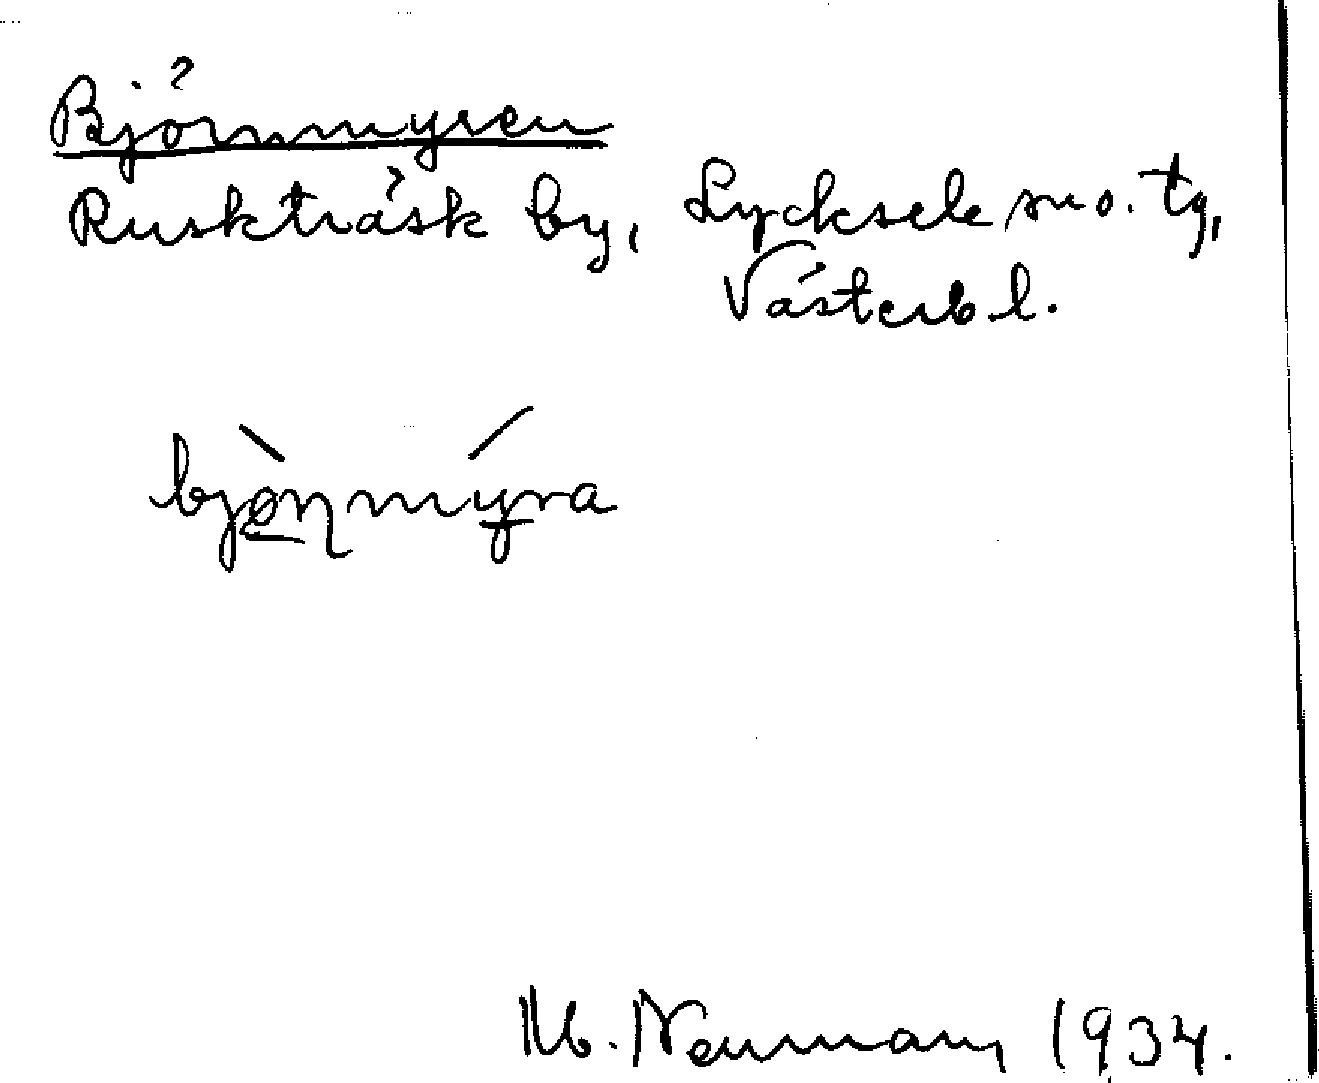 Björnmyren
Ruskträsk by, Lycksele so. tg,
Västerb. l.
bjø̀ṇmýra
M. Neumann 1934.